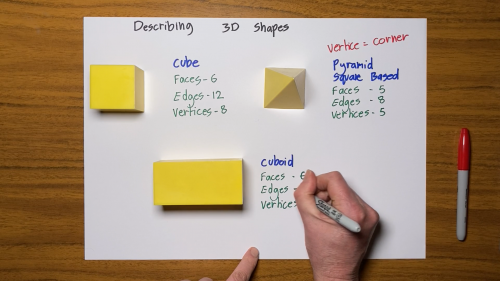 Describing 3D Shapes
vertice = corner
Cube
Faces - 6
Edges - 12
Vertices - 8
Pyramid
Square Based
Faces - 5
Edges - 8
Vertices - 5
Cuboid
Faces - 6
Edges -
Vertices